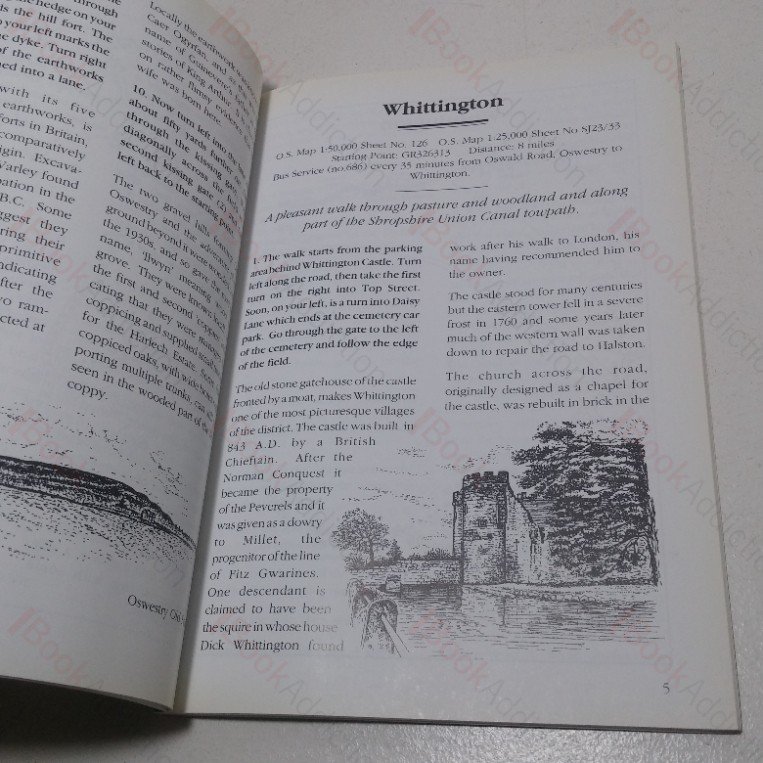 through
hedge on your
s the hill fort. The
your left marks the
e dyke. Turn right
of the earthworks
ned into a lane.
with its five
earthworks, is
forts in Britain,
comparatively
igin. Excava-
Varley found
pation in the
B.C. Some
ggest they
ring their
primitive
ndicating
fter the
vo ram-
cted at
Locally the earthwork
Caer Ogyrfan, and
name of Guinevere's
stories of King Arthur
on rather flimsy evidence
wife was born here.
10. Now turn left into the
about fifty yards further
through the kissing gate
diagonally across the field
second kissing gate (2) and
left back to the starting point
The two gravel hills
Oswestry and the
ground beyond it were
the 1930s, and so gave the
name, 'llwyn' meaning
grove. They were known
the first and second
cating that they were
coppicing and supplied
for the Harlech Estate. Some
coppiced oaks, with wide
porting multiple trunks, can
seen in the wooded part of the
coppy.
Oswestry Old
Whittington
O.S. Map 1:50,000 Sheet No. 126 O.S. Map 1:25,000 Sheet No SJ23/33
Starting Point: GR326313 Distance: 8 miles
Bus Service (no.686) every 35 minutes from Oswald Road, Oswestry to
Whittington.
A pleasant walk through pasture and woodland and along
part of the Shropshire Union Canal towpath.
1. The walk starts from the parking
area behind Whittington Castle. Turn
left along the road, then take the first
turn on the right into Top Street.
Soon, on your left, is a turn into Daisy
Lane which ends at the cemetery car
park. Go through the gate to the left
of the cemetery and follow the edge
of the field.
The old stone gatehouse of the castle
fronted by a moat, makes Whittington
one of the most picturesque villages
of the district. The castle was built in
843 A.D. by a British
Chieftain. After the
Norman Conquest it
became the property
of the Peverels and it
was given as a dowry
to Millet, the
progenitor of the line
of Fitz Gwarines.
One descendant is
claimed to have been
the squire in whose house
Dick Whittington found
work after his walk to London, his
name having recommended him to
the owner.
The castle stood for many centuries
but the eastern tower fell in a severe
frost in 1760 and some years later
much of the western wall was taken
down to repair the road to Halston.
The church across the road,
originally designed as a chapel for
the castle, was rebuilt in brick in the
5